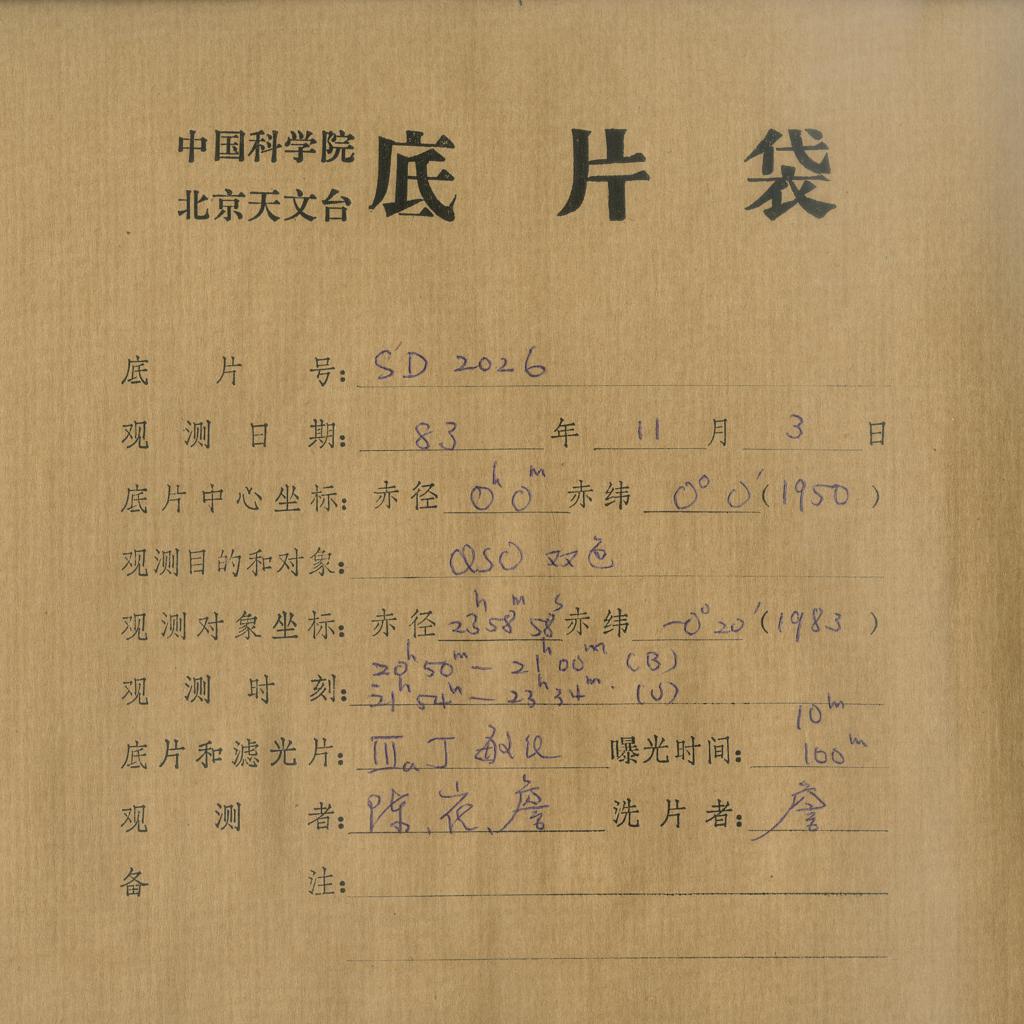 中国科学院
北京天文台
底片袋
底片号: SD 2026
观测日期: 83年 11月 3日
底片中心坐标: 赤径 0h 0m 赤纬 0° 0′(1950)
观测目的和对象: QSO 双色
观测对象坐标: 赤径 23h58m58s 赤纬 -0°20′(1983)
20h50m — 21h00m (B)
观测时刻: 21h54m — 23h34m. (U)
10m
底片和滤光片: IIIaJ 敏化 曝光时间: 100m
观测者: 陈、花、詹 洗片者: 詹
备注: